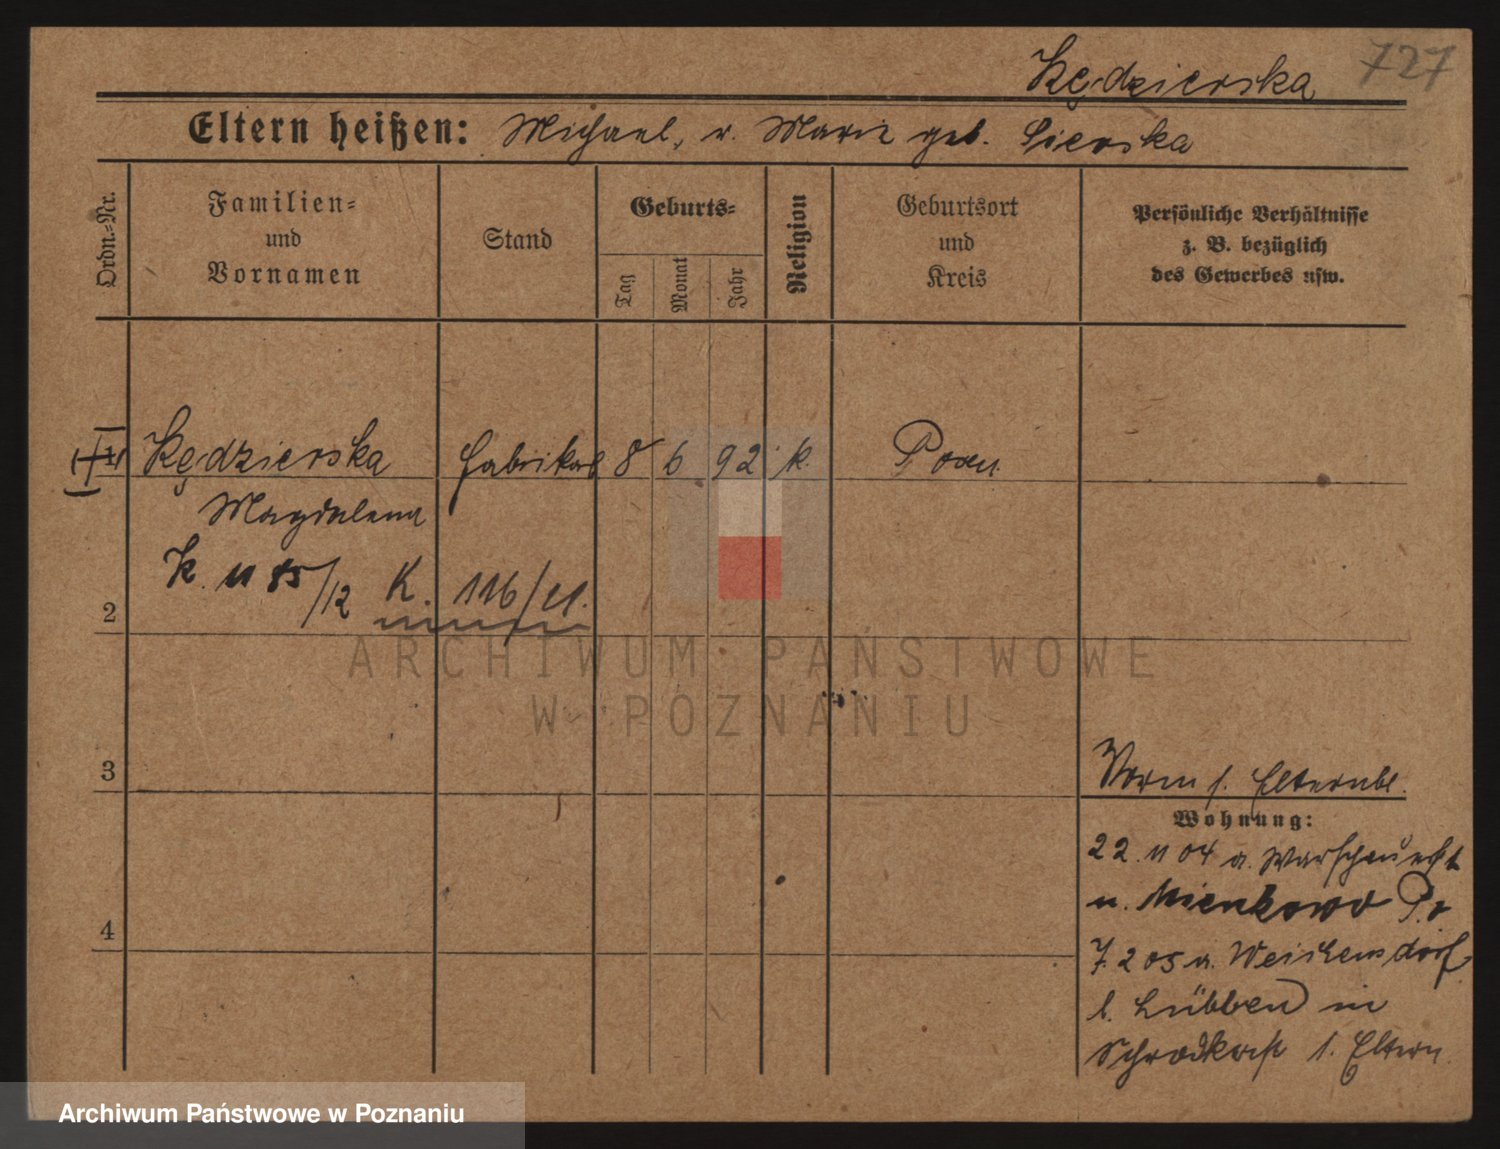 Kędzierska 727
Eltern heißen: Michael, u. Marie geb. Sierska
Ordn.-Nr.
Familien-
und
Vornamen
Stand
Geburts-
Tag
Monat
Jahr
Religion
Geburtsort
und
Kreis
Persönliche Verhältnisse
z. B. bezüglich
des Gewerbes usw.
1 Kędzierska Fabrikarb 8 6 92 k. Posen
Magdalena
K. 11 85/12 K. 116/11.
2
3
4
Vorm s. Elternbl.
Wohnung:
22. 11 04 a.
n. Mienkowo Po
7. 2 05 n. Weichensdorf
b. Lübben in
s. Eltern
ARCHIWUM PAŃSTWOWE
W POZNANIU
Archiwum Państwowe w Poznaniu